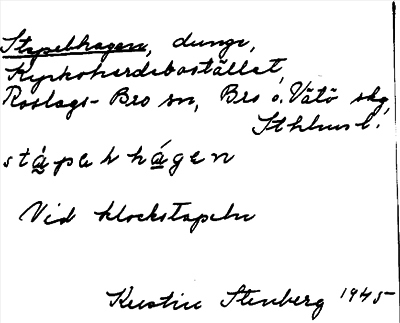 Stapelhagen, dunge,
Kyrkoherdebostället,
Roslags-Bro sn, Bro o. Vätö skg,
Sthlms l.
stápəlhágen
Vid klockstapeln
Kerstin Stenberg 1945